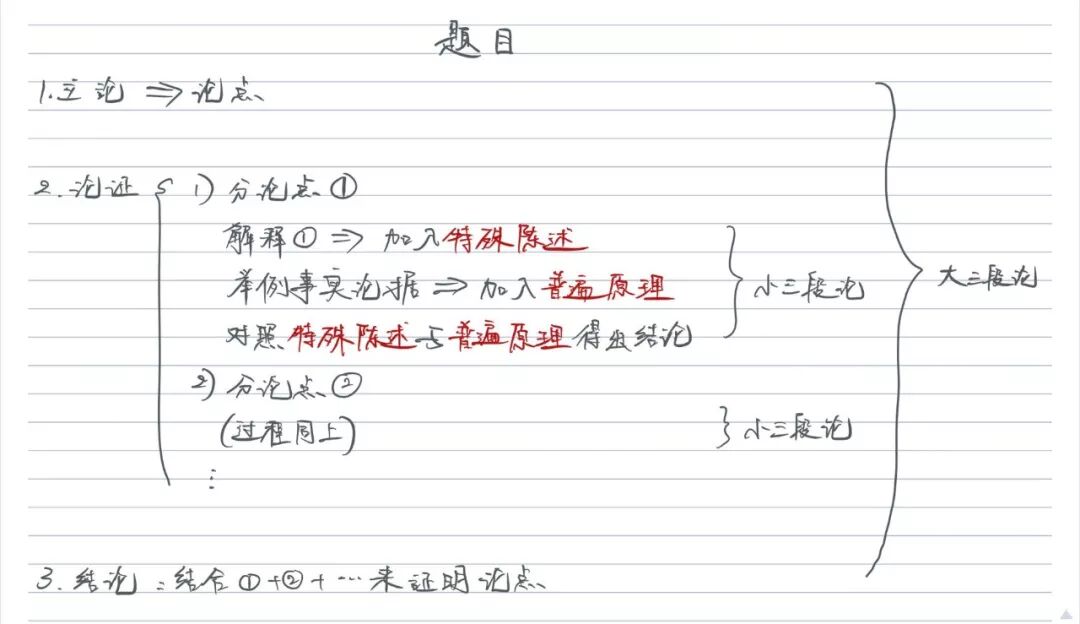 题目
1.立论 ⇒ 论点
2.论证 1) 分论点①
解释① ⇒ 加入特殊陈述
举例事实论据 ⇒ 加入普遍原理
小三段论
大三段论
对照特殊陈述与普遍原理得出结论
2) 分论点②
(过程同上)
小三段论
⋮
3.结论:结合①+②+…来证明论点